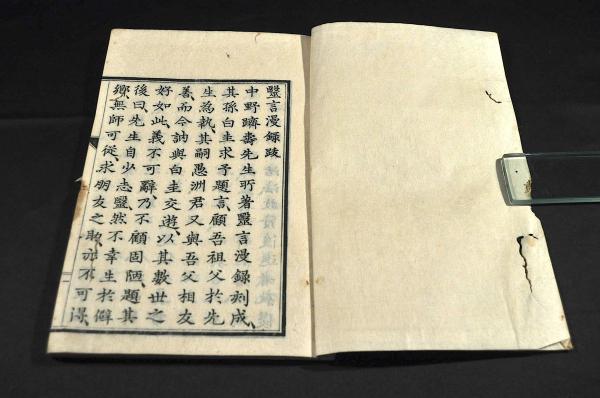 毉言漫錄跋
中野躋壽先生所著毉言漫錄刻成、
其孫白圭求予題言、顧吾祖父於先
生為執、其嗣愚洲君又與吾父相友
善、而今訥與白圭交遊、以其數世之
好如此、義不可辭、乃不顧固陋、題其
後曰、先生自少志毉、然不幸生於僻
鄉、無師可從、求朋友之助、亦不可得、